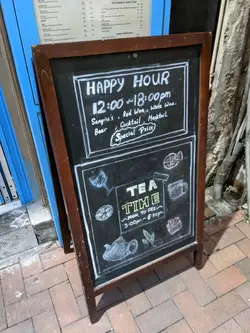 HAPPY HOUR
12:00~18:00pm
Sangria's, Red Wine, White Wine
Beer Cocktail Mocktail
Special Price
TEA
TIME
MON TO FRI
3:00pm~6:00pm